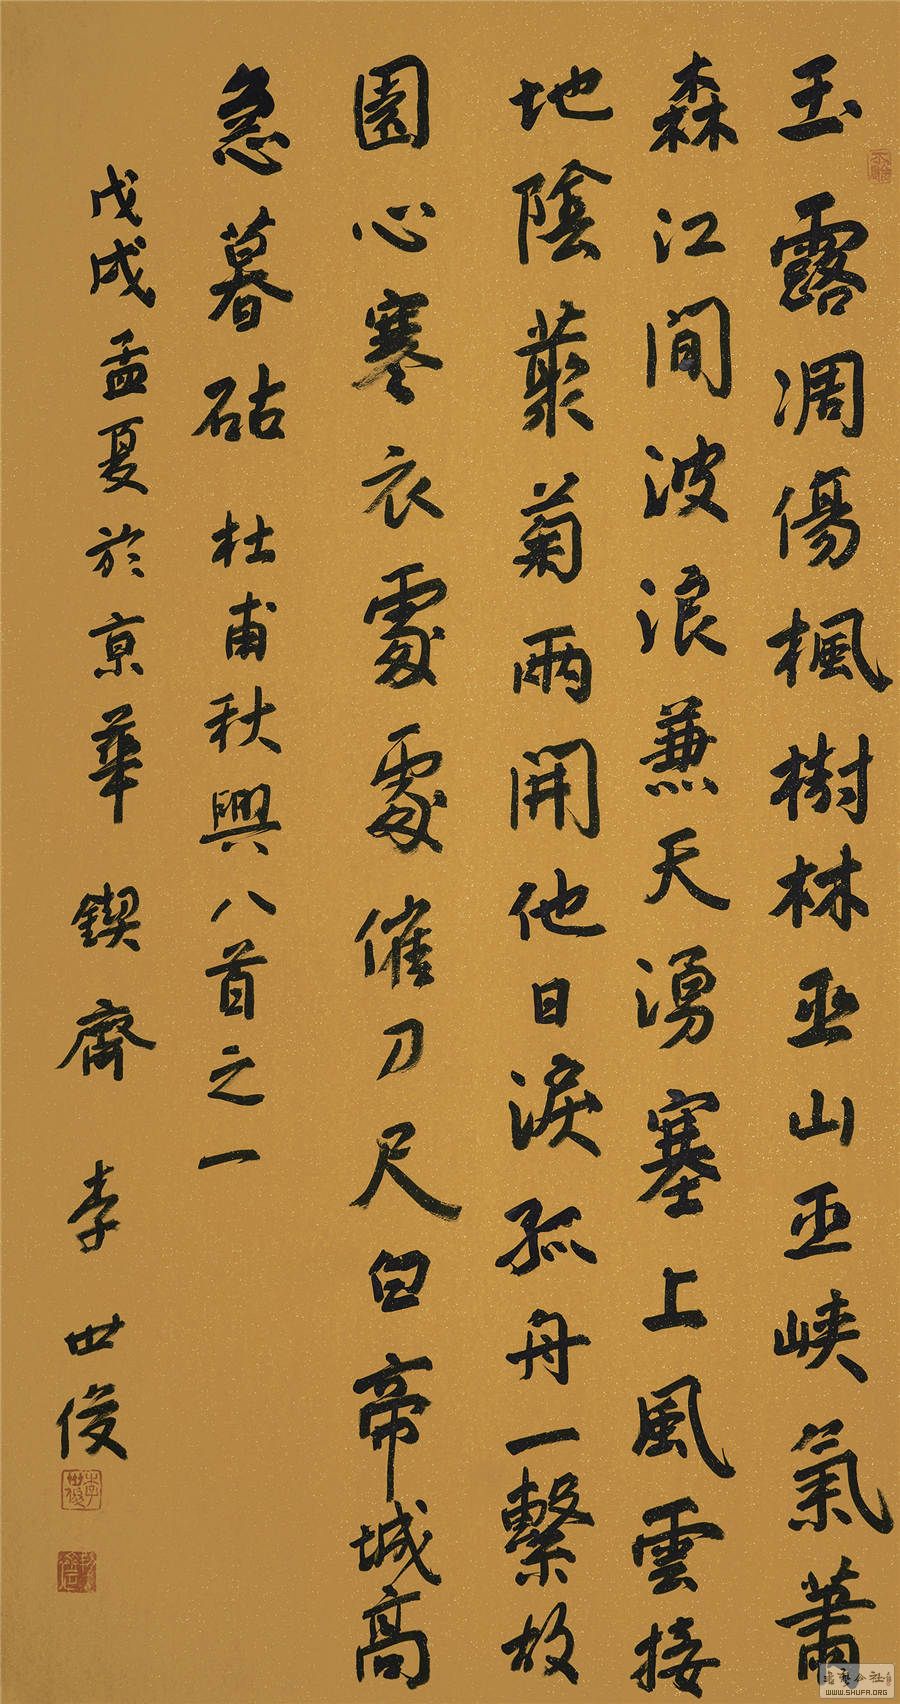 玉露凋傷楓樹林巫山巫峽氣蕭
森江間波浪兼天湧塞上風雲接
地陰叢菊兩開他日淚孤舟一繫故
園心寒衣處處催刀尺白帝城高
急暮砧 杜甫秋興八首之一
戊戌孟夏於京華 鍥齋 李世俊
李世俊
WWW.SHUFA.ORG